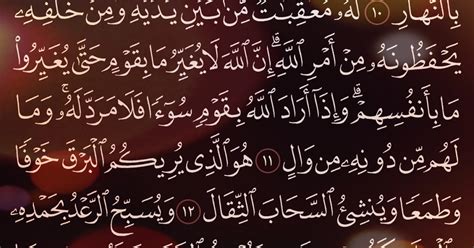 بِٱلنَّهَارِ ١٠ لَهُۥ مُعَقِّبَٰتٌ مِّنۢ بَيْنِ يَدَيْهِ وَمِنْ خَلْفِهِۦ
يَحْفَظُونَهُۥ مِنْ أَمْرِ ٱللَّهِۗ إِنَّ ٱللَّهَ لَا يُغَيِّرُ مَا بِقَوْمٍ حَتَّىٰ يُغَيِّرُوا۟
مَا بِأَنفُسِهِمْۗ وَإِذَآ أَرَادَ ٱللَّهُ بِقَوْمٍ سُوٓءًا فَلَا مَرَدَّ لَهُۥۚ وَمَا
لَهُم مِّن دُونِهِۦ مِن وَالٍ ١١ هُوَ ٱلَّذِى يُرِيكُمُ ٱلْبَرْقَ خَوْفًا
وَطَمَعًا وَيُنشِئُ ٱلسَّحَابَ ٱلثِّقَالَ ١٢ وَيُسَبِّحُ ٱلرَّعْدُ بِحَمْدِهِۦ